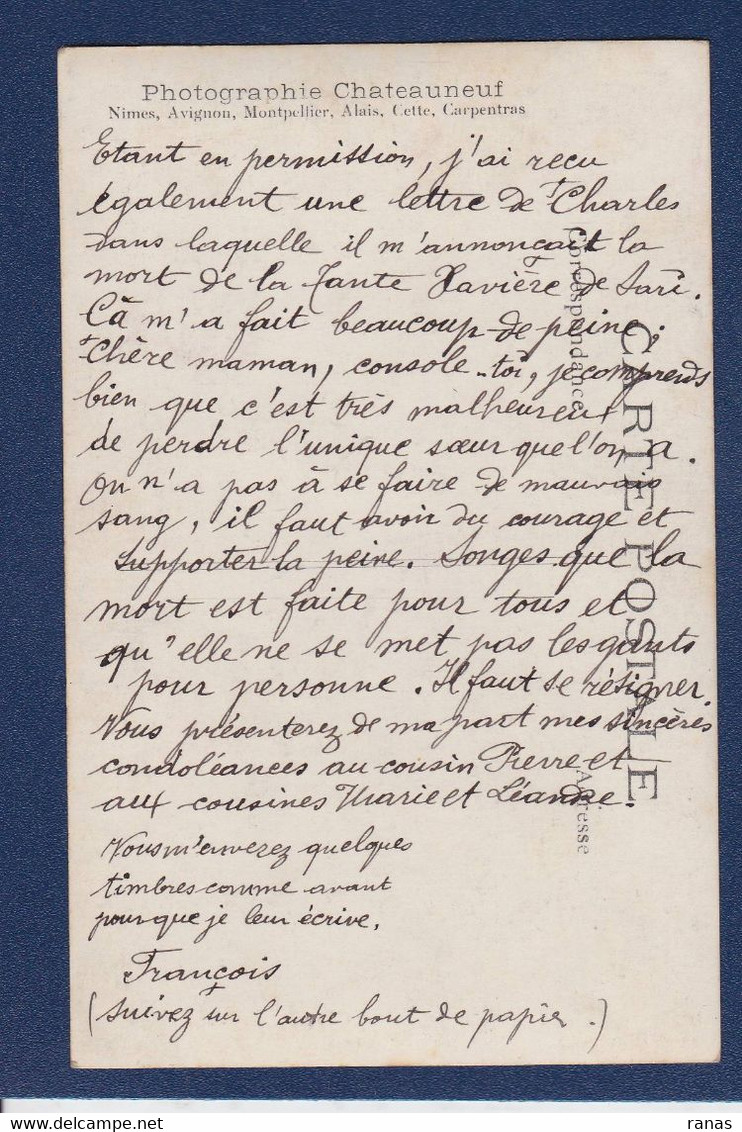 Photographie Chateauneuf
Nimes, Avignon, Montpellier, Alais, Cette, Carpentras
Etant en permission, j'ai recu
également une lettre de Charles
dans laquelle il m'annonçait la
mort de la Tante Xavière de Sari.
Cà m'a fait beaucoup de peine,
Chère maman, console-toi, je comprends
bien que c'est très malheureux
de perdre l'unique sœur que l'on a.
On n'a pas à se faire de mauvais
sang, il faut avoir du courage et
supporter la peine. Songes que la
mort est faite pour tous et
qu'elle ne se met pas les gants
pour personne. Il faut se résigner.
Vous présenterez de ma part mes sincères
condoléances au cousin Pierre et
aux cousines Marie et Léandre.
Vous m'enverez quelques
timbres comme avant
pour que je leur écrive.
François
(suivez sur l'autre bout de papier.)
CARTE POSTALE
Correspondance
Adresse
ranas